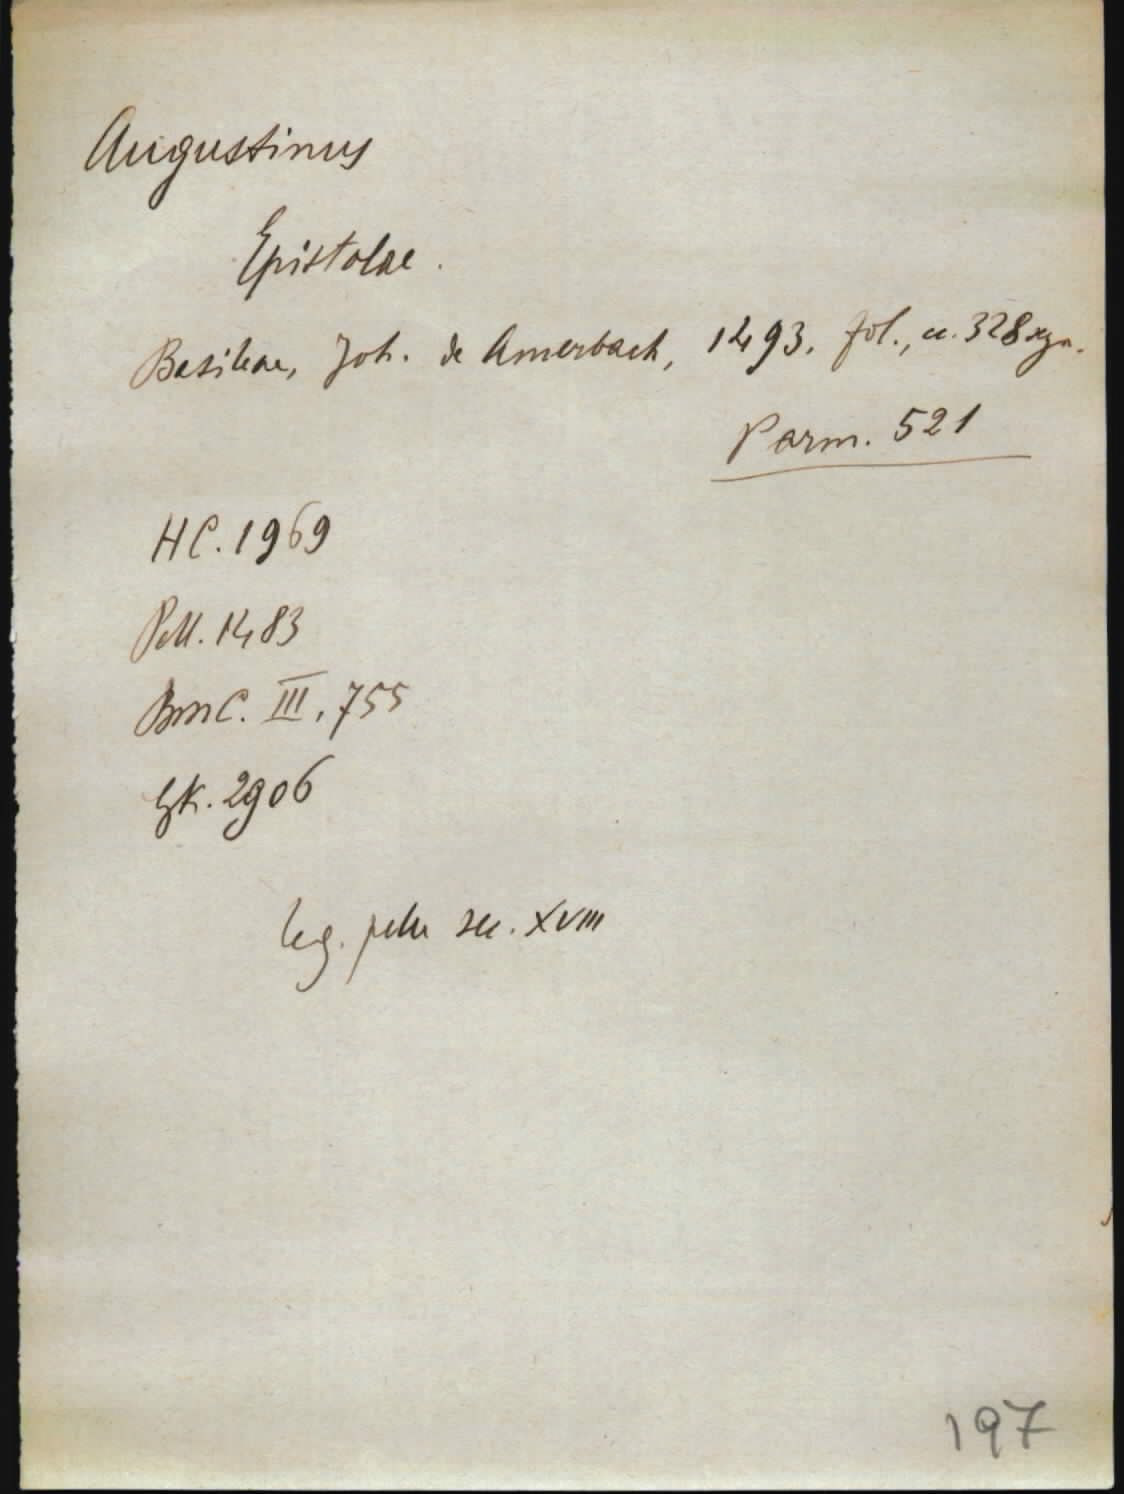 Augustinus
Epistolae.
Basileae, Joh. de Amerbach, 1493. fol., cc. 328
Parm. 521
HC. 1969
Pell. 1483
BMC. III, 755
GK. 2906
leg. pelle sec. XVIII
197